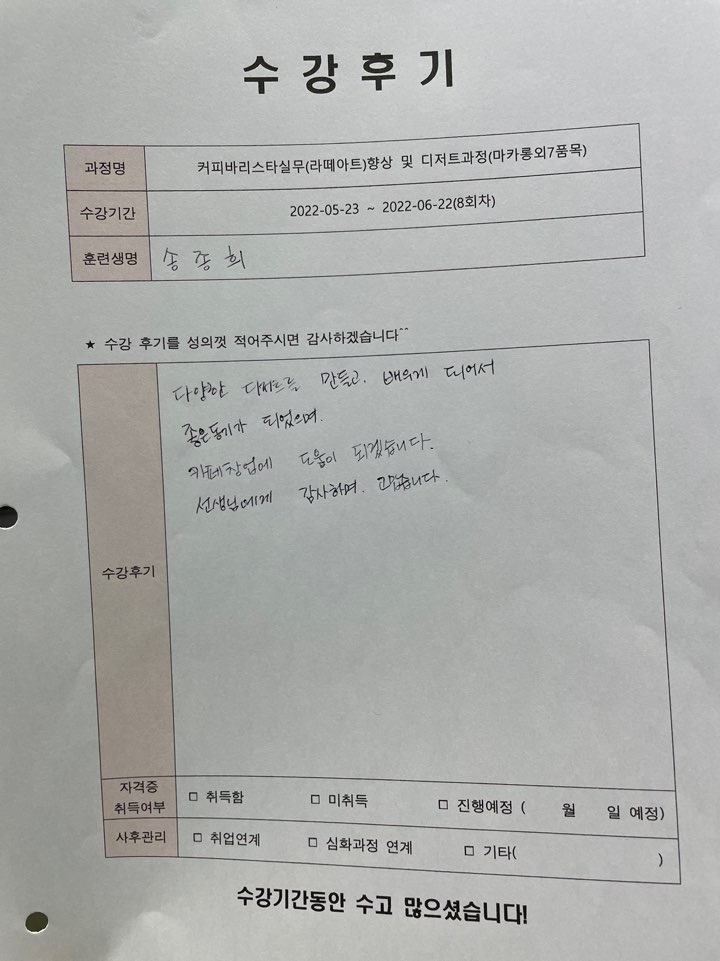 수강후기
과정명 커피바리스타실무(라떼아트)향상 및 디저트과정(마카롱외7품목)
수강기간 2022-05-23 ~ 2022-06-22(8회차)
훈련생명 송종희
★ 수강 후기를 성의껏 적어주시면 감사하겠습니다^^
다양한 디저트를 만들고, 배우게 되어서
좋은동기가 되었으며,
카페창업에 도움이 되겠습니다.
선생님에게 감사하며, 고맙습니다.
수강후기
자격증 취득여부 □ 취득함 □ 미취득 □ 진행예정 ( 월 일 예정)
사후관리 □ 취업연계 □ 심화과정 연계 □ 기타( )
수강기간동안 수고 많으셨습니다!